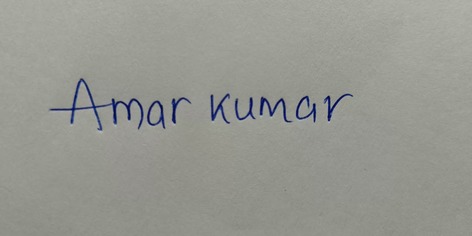 Amar Kumar